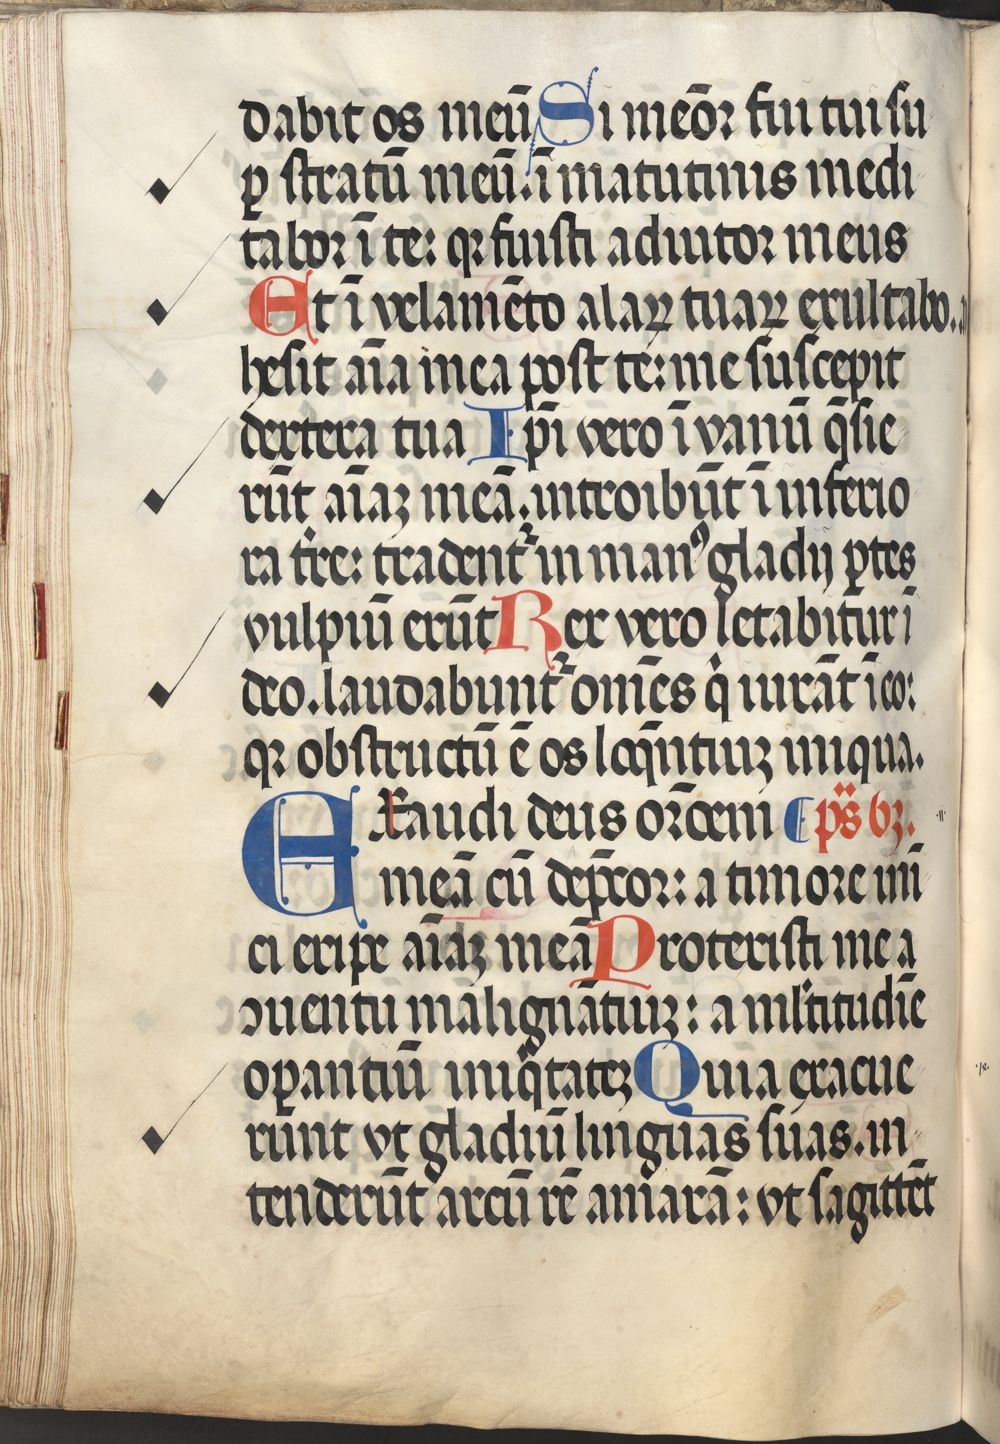 dabit os meū Si meōꝛ fui tui su
ꝑ stratū meū. ī matutinis medi
taboꝛ ī te: qꝛ fuisti adiutoꝛ meus
Et ī velamēto alaꝝ tuaꝝ exultabo.a
hesit aīa mea post te: me suscepit
dextera tua Ipī vero ī vanū q̄sie
rūt aīaꝫ meā. introibūt ī inferio
ra t̄re: tradent᷑ in manꝰ gladij ꝑtes
vulpiū erūt Rex vero letabitur ī
deo. laudabunt᷑ om̄es qͥ iurāt ī eo:
qꝛ obstructū ē os loq̄ntiuꝫ iniqua.
Exaudi deus oꝛōem ¶ p̄s bꝫ.
meā cū dep̄coꝛ: a timoꝛe imi
ci eripe aīaꝫ meā Protexisti me a
ↄuentu malignātiuꝫ: a ml̓titudīe
oꝑantiū iniq̄tateꝫ Quia exacue
rūnt vt gladiū linguas suas. in
tenderūt arcū rē amarā: vt sagittēt